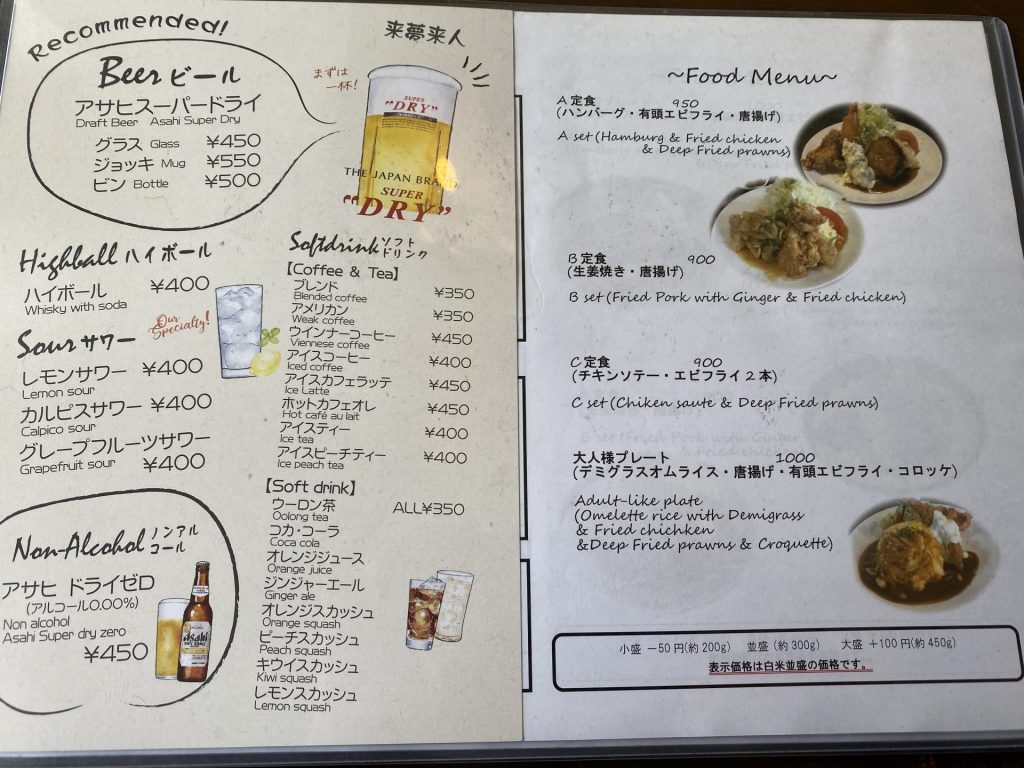 Recommended!
Beer ビール
アサヒスーパードライ
Draft Beer Asahi Super Dry
グラス Glass ¥450
ジョッキ Mug ¥550
ビン Bottle ¥500
来夢来人
まずは
一杯!
SUPER
"DRY"
THE JAPAN BRAND
SUPER
"DRY"
Highball ハイボール
ハイボール ¥400
Whisky with soda
Our
Specialty!
Sour サワー
レモンサワー ¥400
Lemon sour
カルピスサワー ¥400
Calpico sour
グレープフルーツサワー
Grapefruit sour ¥400
Non-Alcohol ノンアル
コール
アサヒ ドライゼロ
(アルコール0.00%)
Non alcohol
Asahi Super dry zero
¥450
Asahi
Softdrink ソフト
ドリンク
【Coffee & Tea】
ブレンド ¥350
Blended coffee
アメリカン ¥350
Weak coffee
ウインナーコーヒー ¥450
Viennese coffee
アイスコーヒー ¥400
Iced coffee
アイスカフェラッテ ¥450
Ice Latte
ホットカフェオレ ¥450
Hot café au lait
アイスティー ¥400
Ice tea
アイスピーチティー ¥400
Ice peach tea
【Soft drink】
ウーロン茶 ALL¥350
Oolong tea
コカ・コーラ
Coca cola
オレンジジュース
Orange juice
ジンジャーエール
Ginger ale
オレンジスカッシュ
Orange squash
ピーチスカッシュ
Peach squash
キウイスカッシュ
Kiwi squash
レモンスカッシュ
Lemon squash
~Food Menu~
A 定食 950
(ハンバーグ・有頭エビフライ・唐揚げ)
A set (Hamburg & Fried chicken
& Deep Fried prawns)
B 定食 900
(生姜焼き・唐揚げ)
B set (Fried Pork with Ginger & Fried chicken)
C 定食 900
(チキンソテー・エビフライ2本)
C set (Chiken saute & Deep Fried prawns)
大人様プレート 1000
(デミグラスオムライス・唐揚げ・有頭エビフライ・コロッケ)
Adult-like plate
(Omelette rice with Demigrass
& Fried chichken
&Deep Fried prawns & Croquette)
小盛 −50円(約200g) 並盛 (約300g) 大盛 +100円(約450g)
表示価格は白米並盛の価格です。